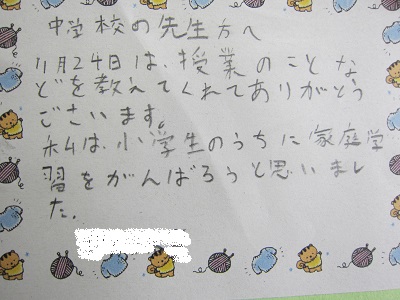 中学校の先生方へ
11月24日は、授業のことな
どを教えてくれてありがとう
ございます。
私は、小学生のうちに家庭学
習をがんばろうと思いまし
た。